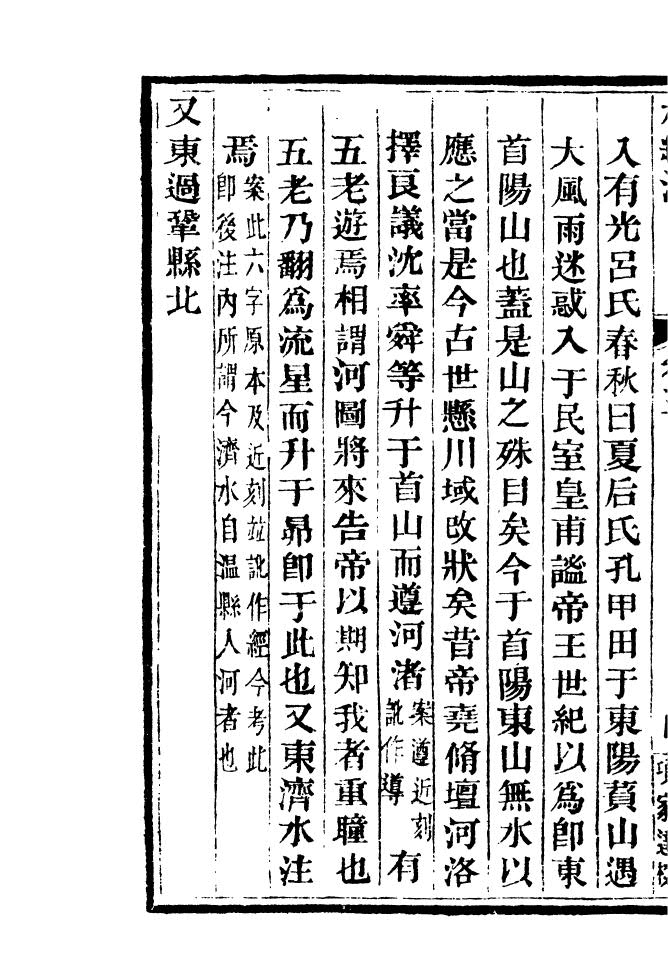 入有光呂氏春秋曰夏后氏孔甲田于東陽萯山遇
大風雨迷惑入于民室皇甫謐帝王世紀以為卽東
首陽山也蓋是山之殊目矣今于首陽東山無水以
應之當是今古世懸川域改狀矣昔帝堯脩壇河洛
擇良議沈率舜等升于首山而遵河渚案遵近刻訛作導有
五老遊焉相謂河圖將來告帝以期知我者重瞳也
五老乃翻為流星而升于昴卽于此也又東濟水注
焉案此六字原本及近刻竝訛作經今考此卽後注內所謂今濟水自溫縣入河者也
又東過鞏縣北